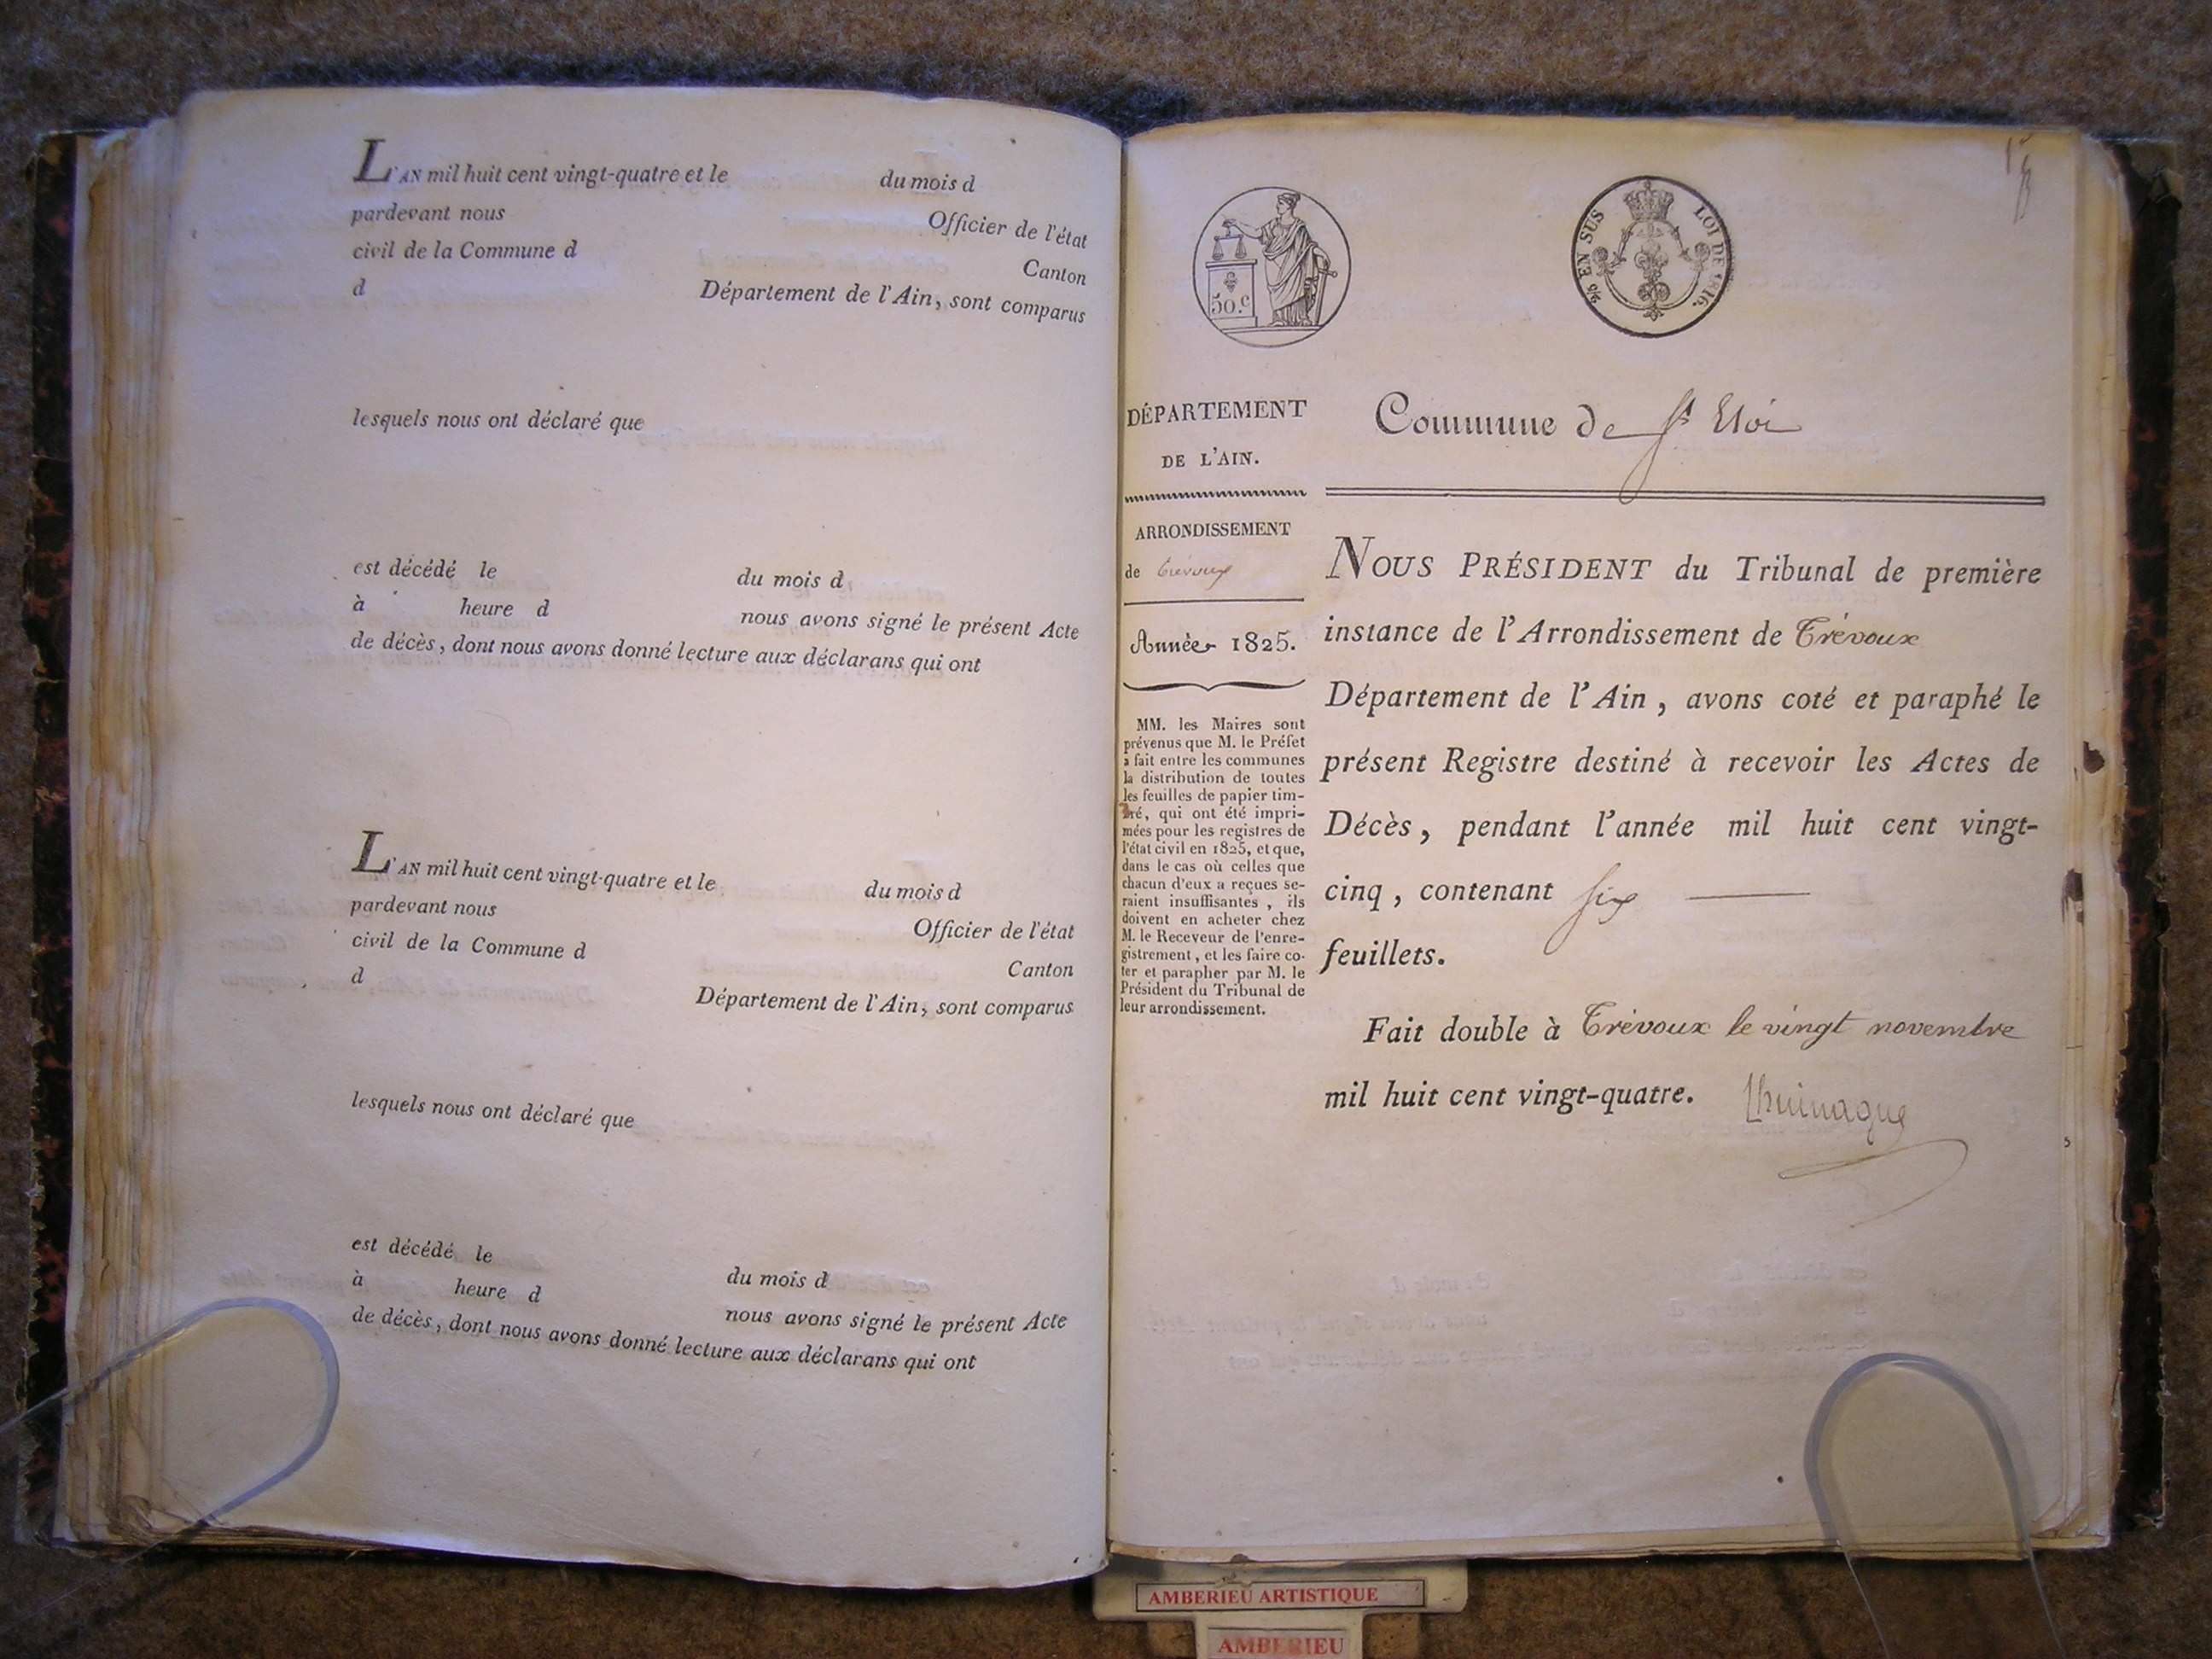 L'AN mil huit cent vingt-quatre et le du mois d
pardevant nous Officier de l'état
civil de la Commune d Canton
d Département de l'Ain, sont comparus
lesquels nous ont déclaré que
est décédé le du mois d
à heure d nous avons signé le présent Acte
de décès, dont nous avons donné lecture aux déclarans qui ont
L'AN mil huit cent vingt-quatre et le du mois d
pardevant nous Officier de l'état
civil de la Commune d Canton
d Département de l'Ain, sont comparus
lesquels nous ont déclaré que
est décédé le du mois d
à heure d nous avons signé le présent Acte
de décès, dont nous avons donné lecture aux déclarans qui ont
50.c
EN SUS LOI DE 1816.
DÉPARTEMENT
DE L'AIN.
ARRONDISSEMENT
de Trévoux
Année 1825.
MM. les Maires sont
prévenus que M. le Préfet
a fait entre les communes
la distribution de toutes
les feuilles de papier tim-
bré, qui ont été impri-
mées pour les registres de
l'état civil en 1825, et que,
dans le cas où celles que
chacun d'eux a reçues se-
raient insuffisantes, ils
doivent en acheter chez
M. le Receveur de l'enre-
gistrement, et les faire co-
ter et parapher par M. le
Président du Tribunal de
leur arrondissement.
Commune de St Eloi
NOUS PRÉSIDENT du Tribunal de première
instance de l'Arrondissement de Trévoux
Département de l'Ain, avons coté et paraphé le
présent Registre destiné à recevoir les Actes de
Décès, pendant l'année mil huit cent vingt-
cinq, contenant six
feuillets.
Fait double à Trévoux le vingt novembre
mil huit cent vingt-quatre.
AMBERIEU ARTISTIQUE
AMBERIEU